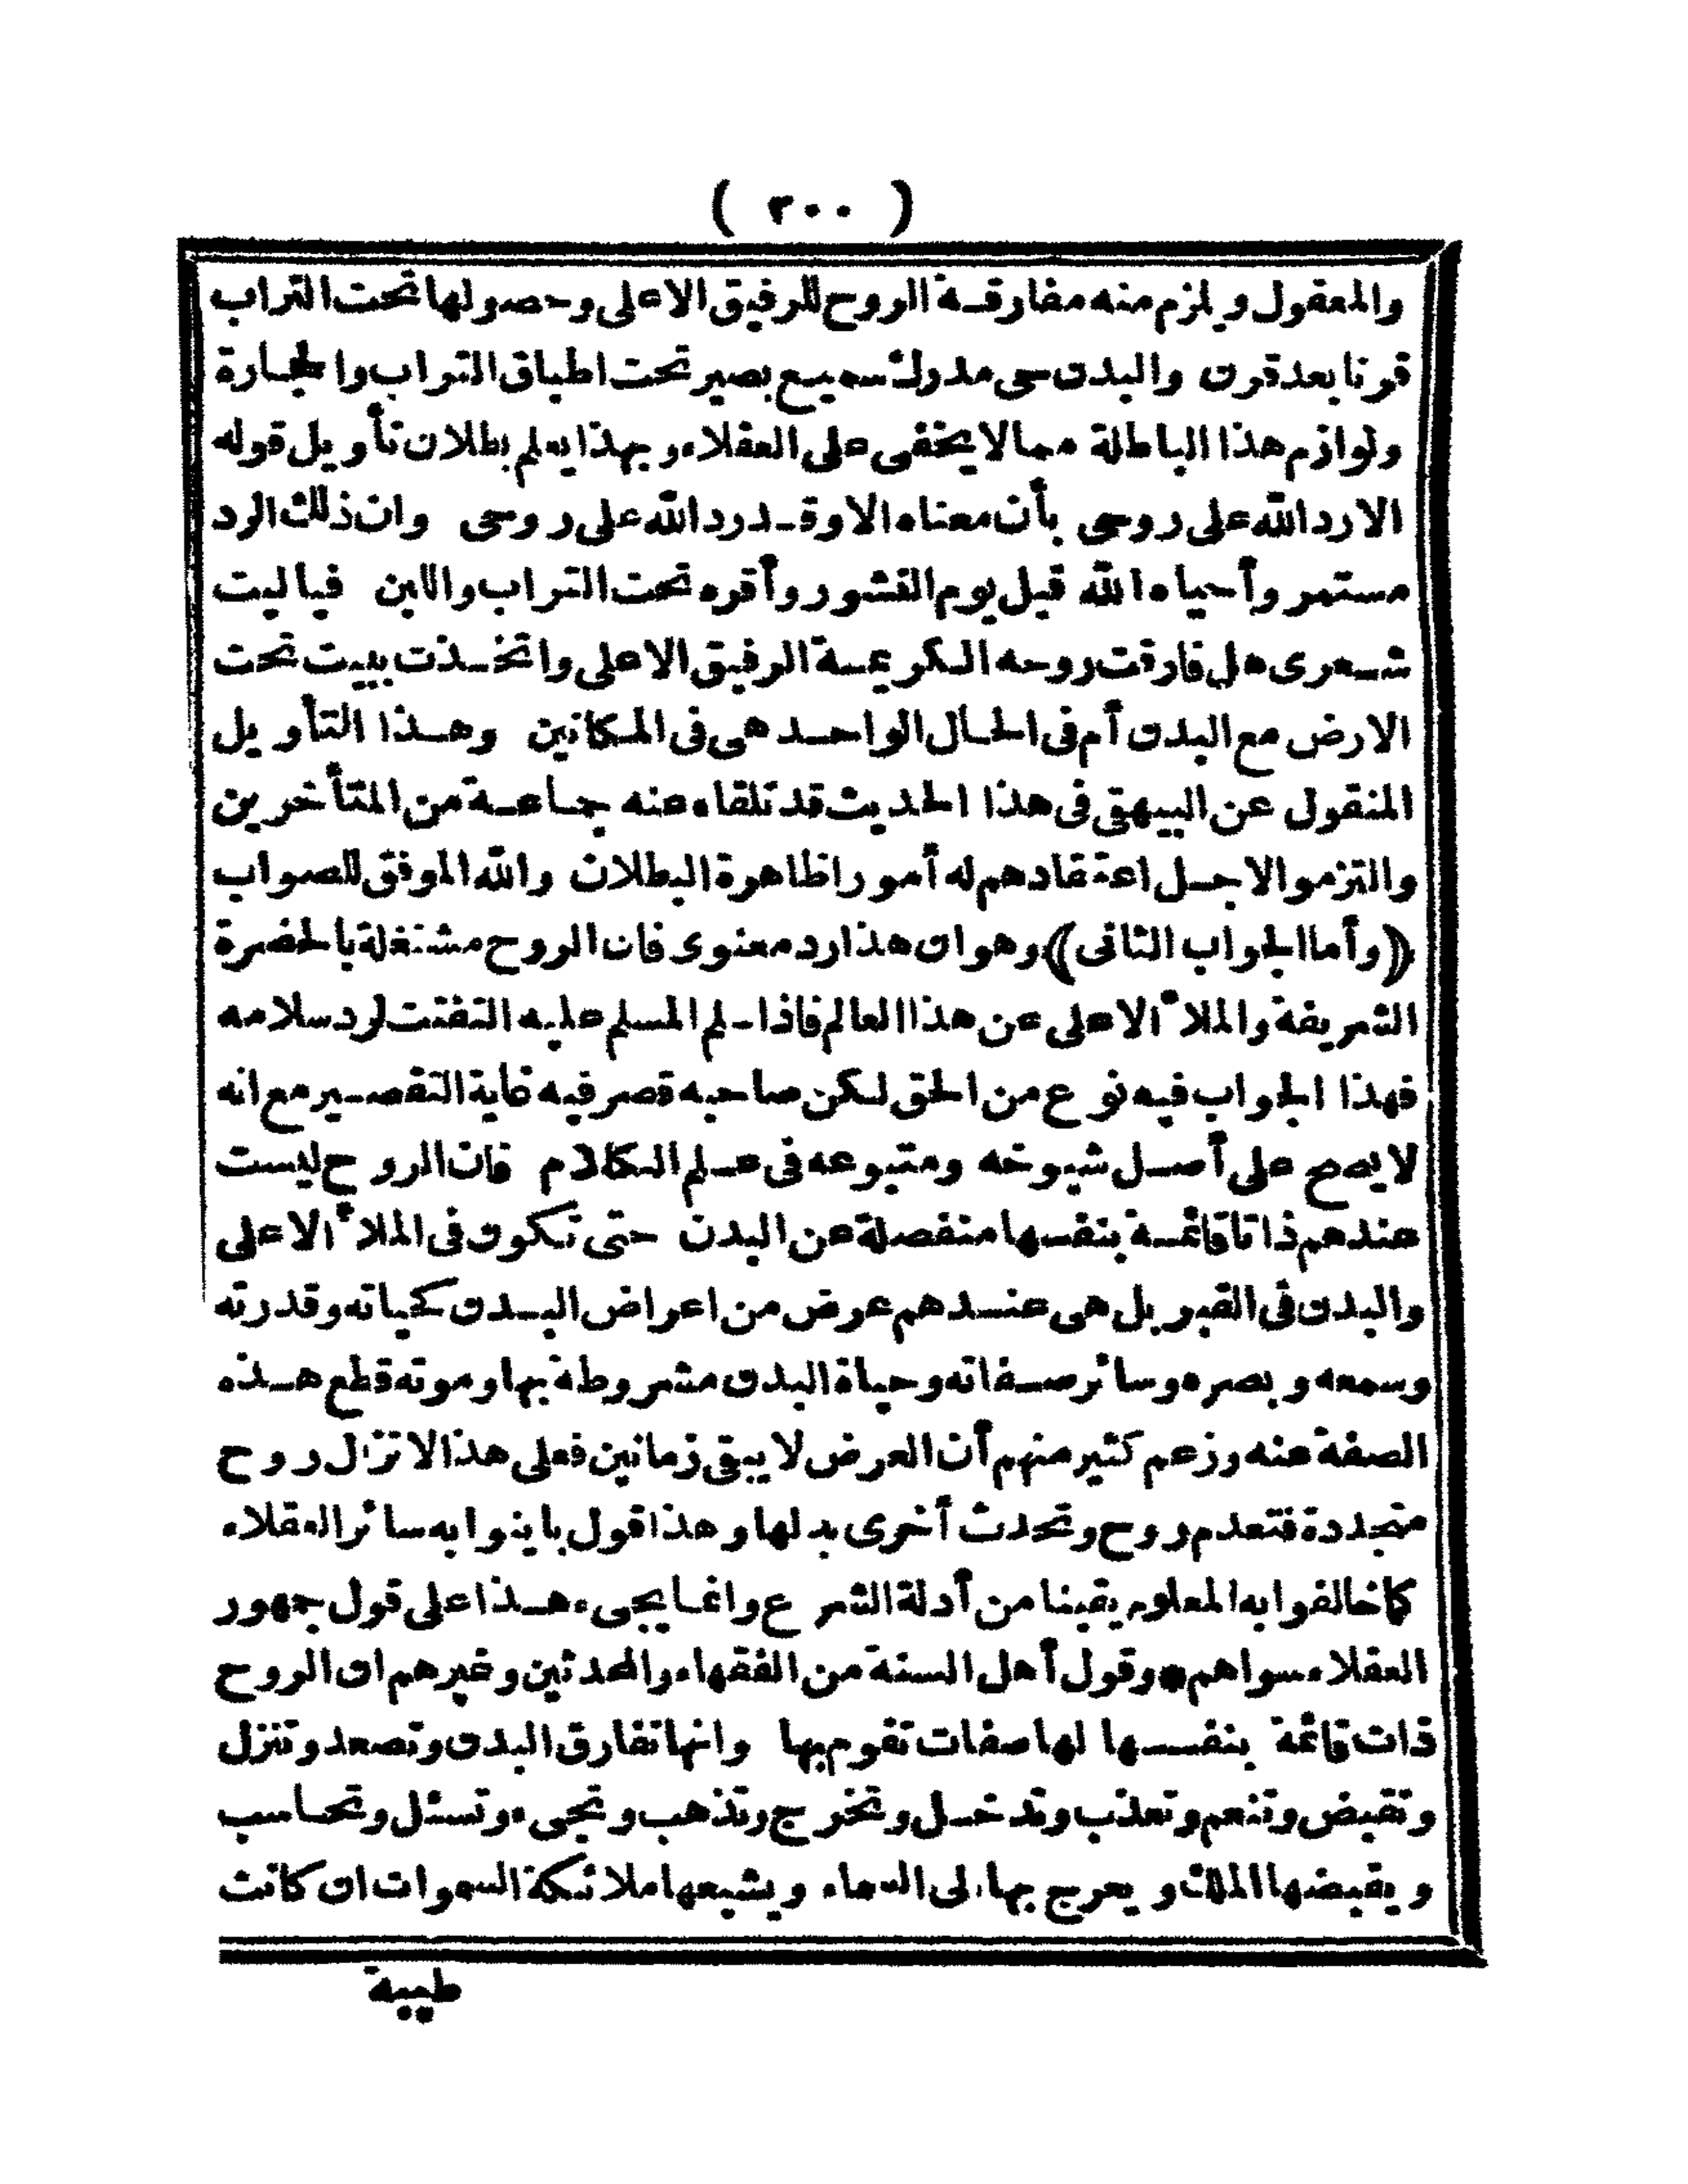 ( ٢٠٠ )
والمعقول ويلزم منه مفارقة الروح للرفيق الاعلى وحصولها تحت التراب
قرنا بعد قرن والبدن حى مدرك سميع بصير تحت اطباق التراب والحجارة
ولوازم هذا الباطلة مما لا يخفى على العقلاء وبهذا يعلم بطلان تأويل قوله
الا رد الله على روحى بأن معناه الا وقد رد الله على روحى وان ذلك الرد
مستمر وأحياه الله قبل يوم النشور وأقره تحت التراب واللبن فياليت
شعرى هل فارقت روحه الكريمة الرفيق الاعلى واتخذت ببيت تحت
الارض مع البدن أم فى الحال الواحد هى فى المكانين وهذا التأويل
المنقول عن البيهقى فى هذا الحديث قد تلقاه عنه جماعة من المتأخرين
والتزموا لاجل اعتقادهم له أمورا ظاهرة البطلان والله الموفق للصواب
﴿وأما الجواب الثانى﴾ وهو ان هذا رد معنوى فان الروح مشتغلة بالحضرة
الشريفة والملأ الاعلى عن هذا العالم فاذا سلم المسلم عليه التفتت لرد سلامه
فهذا الجواب فيه نوع من الحق لكن صاحبه قصر فيه غاية التقصير مع انه
لا يصح على أصل شيوخه ومتبوعه فى علم الكلام فان الروح ليست
عندهم ذاتا قائمة بنفسها منفصلة عن البدن حتى تكون فى الملأ الاعلى
والبدن فى القبر بل هى عندهم عرض من اعراض البدن كحياته وقدرته
وسمعه وبصره وسائر صفاته وحياة البدن مشروطة بها وموته قطع هذه
الصفة عنه وزعم كثير منهم أن العرض لا يبقى زمانين فعلى هذا لا تزال روح
متجددة فتعدم روح وتحدث أخرى بدلها وهذا قول باينوا به سائر العقلاء
كما خالفوا به المعلوم يقينا من أدلة الشرع وانما يجىء هذا على قول جمهور
العقلاء سواهم * وقول أهل السنة من الفقهاء والمحدثين وغيرهم ان الروح
ذات قائمة بنفسها لها صفات تقوم بها وانها تفارق البدن وتصعد وتنزل
وتقبض وتنعم وتعذب وتدخل وتخرج وتذهب وتجىء وتسئل وتحاسب
ويقبضها الملك ويعرج بها الى السماء ويشيعها ملائكة السموات ان كانت
طيبة